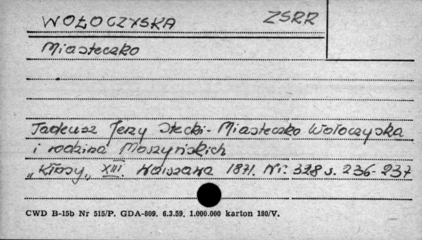 WOŁOCZYSKA ZSRR
Miasteczko
Tadeusz Jerzy Stecki - Miasteczko Wołoczyska
i rodzina Moszyńskich
„Kłosy„ XIII. Warszawa 1871. Nr. 328 s. 236-237
CWD B-15b Nr 515/P. GDA-809. 6.3.59. 1.000.000 karton 180/V.